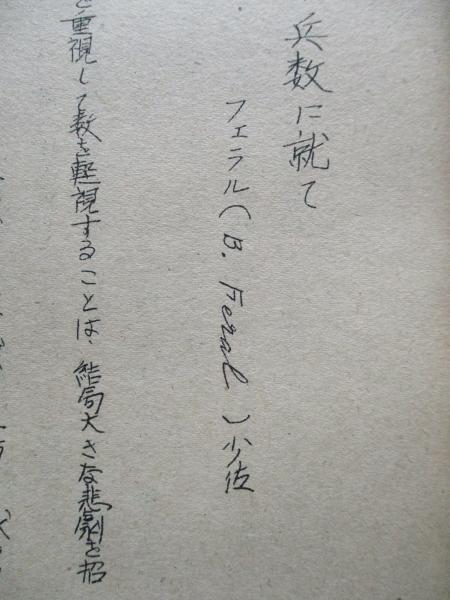 兵数に就て
フェラル(B. Feral)少佐
重視して数を軽視することは、結局大さな悲劇を招